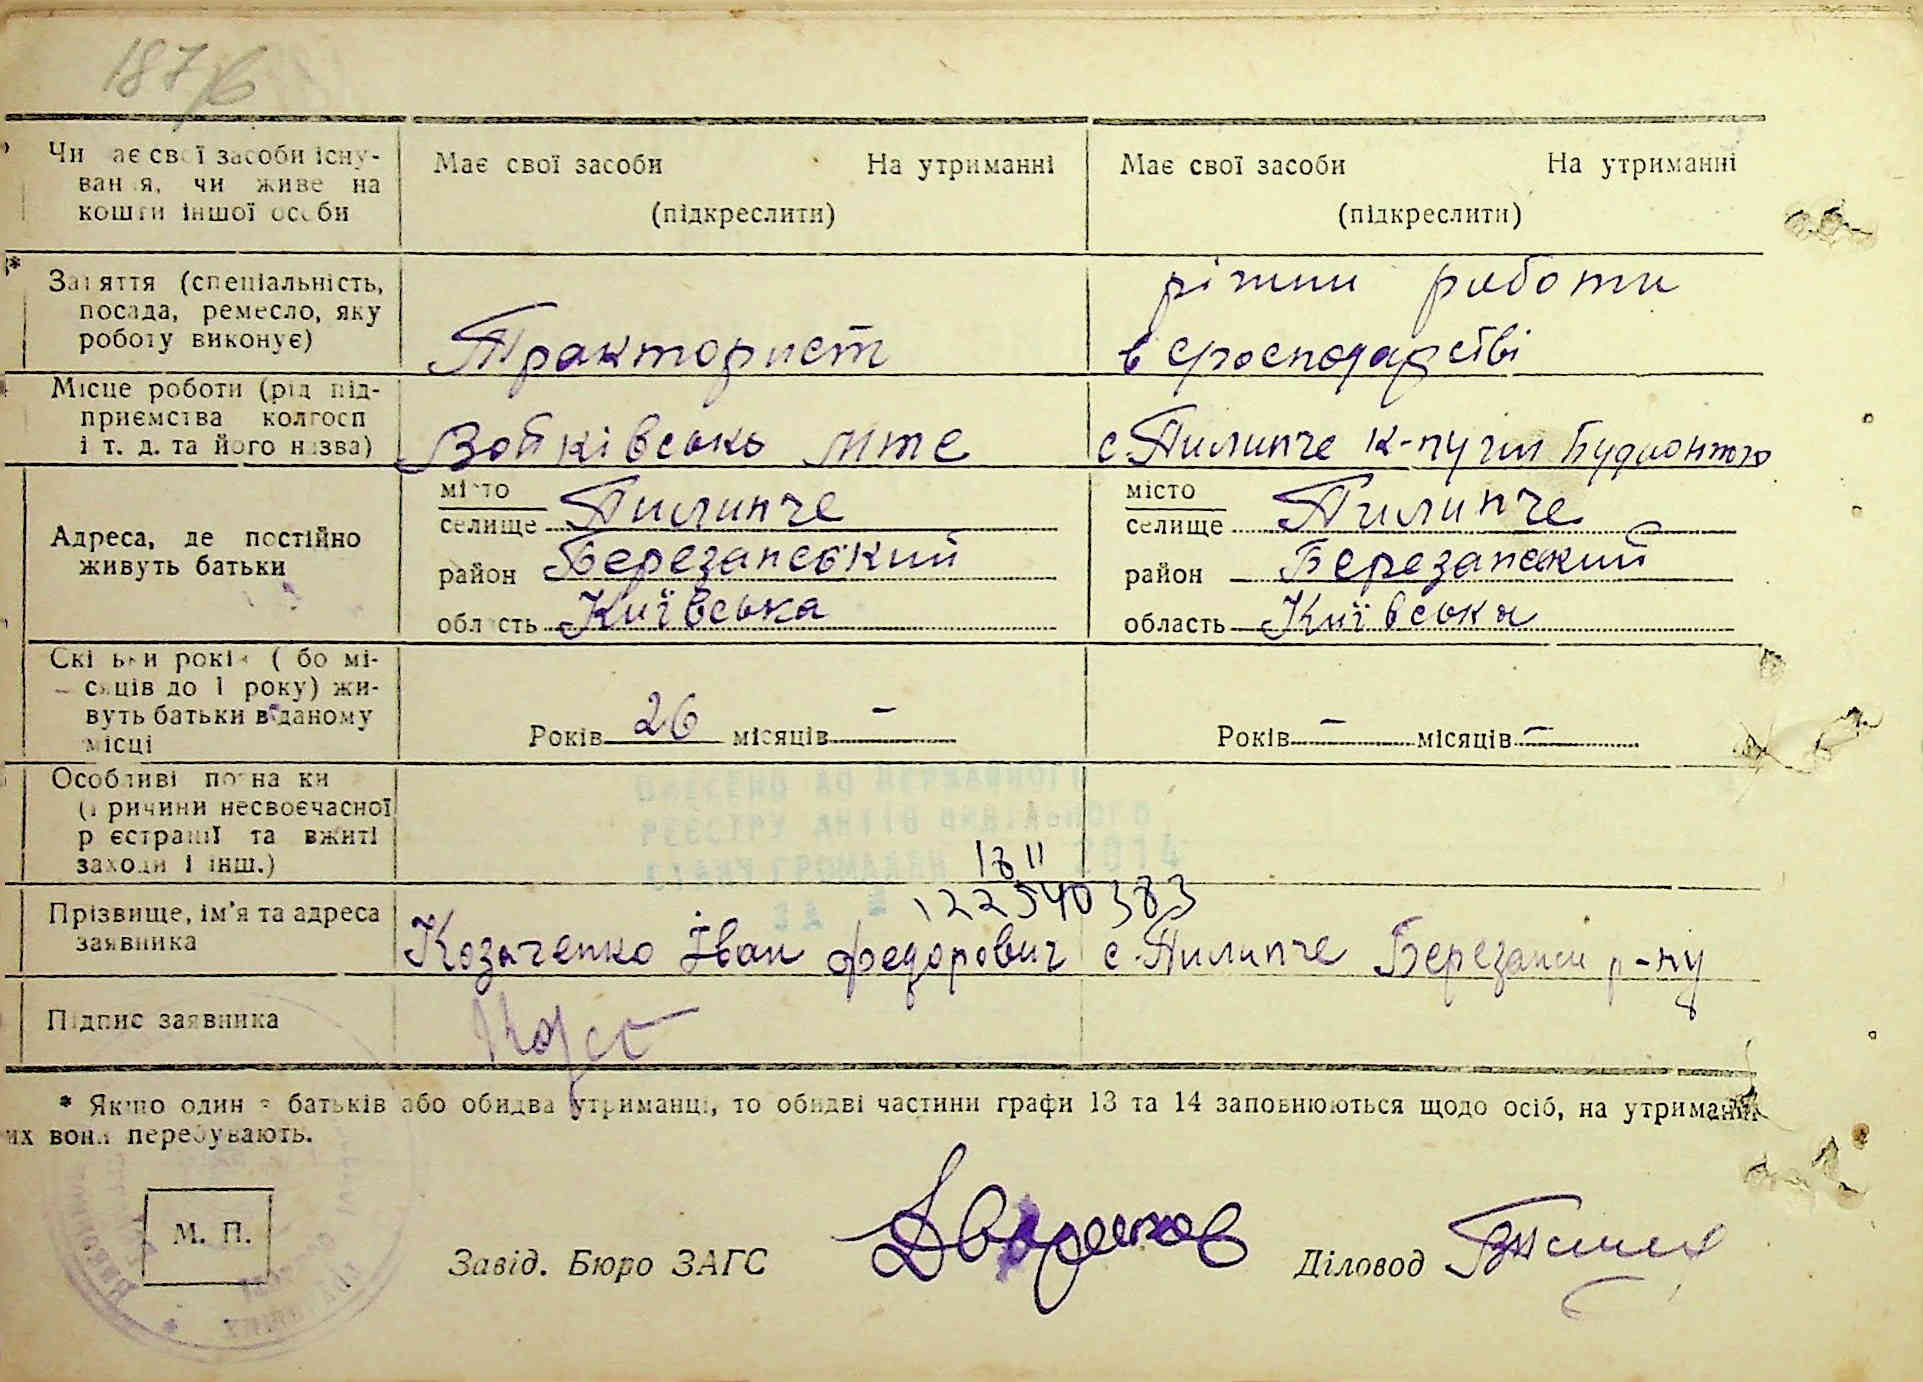 187/6
Чи має свої засоби існу-
вання, чи живе на
кошти іншої особи
Має свої засоби На утриманні
(підкреслити)
Має свої засоби На утриманні
(підкреслити)
* Заняття (спеціальність,
посада, ремесло, яку
роботу виконує)
Тракторист
різний роботи
в сросподарстві
Місце роботи (рід під-
приємства колгосп
і т. д. та його назва)
Войківсько мтс
с. Пилипче к-п
Адреса, де постійно
живуть батьки
місто
селище Пилипче
район Березанський
область Київська
місто
селище Пилипче
район Березанський
область Київська
Скільки років (або мі-
сяців до 1 року) жи-
вуть батьки в даному
місці
Років 26 місяців –
Років – місяців –
Особливі познаки
(причини несвоєчасної
реєстрації та вжиті
заходи і інш.)
ВНЕСЕНО ДО ДЕРЖАВНОГО
РЕЄСТРУ АКТІВ ЦИВІЛЬНОГО
СТАНУ ГРОМАДЯН 18 11 2014
ЗА № 122540383
Прізвище, ім'я та адреса
заявника
Козаченко Іван Федорович с. Пилипче Березанськ р-ну
Підпис заявника
* Якщо один з батьків або обидва утриманці, то обидві частини графи 13 та 14 заповнюються щодо осіб, на утриманні
их вони перебувають.
М. П.
Завід. Бюро ЗАГС
Діловод